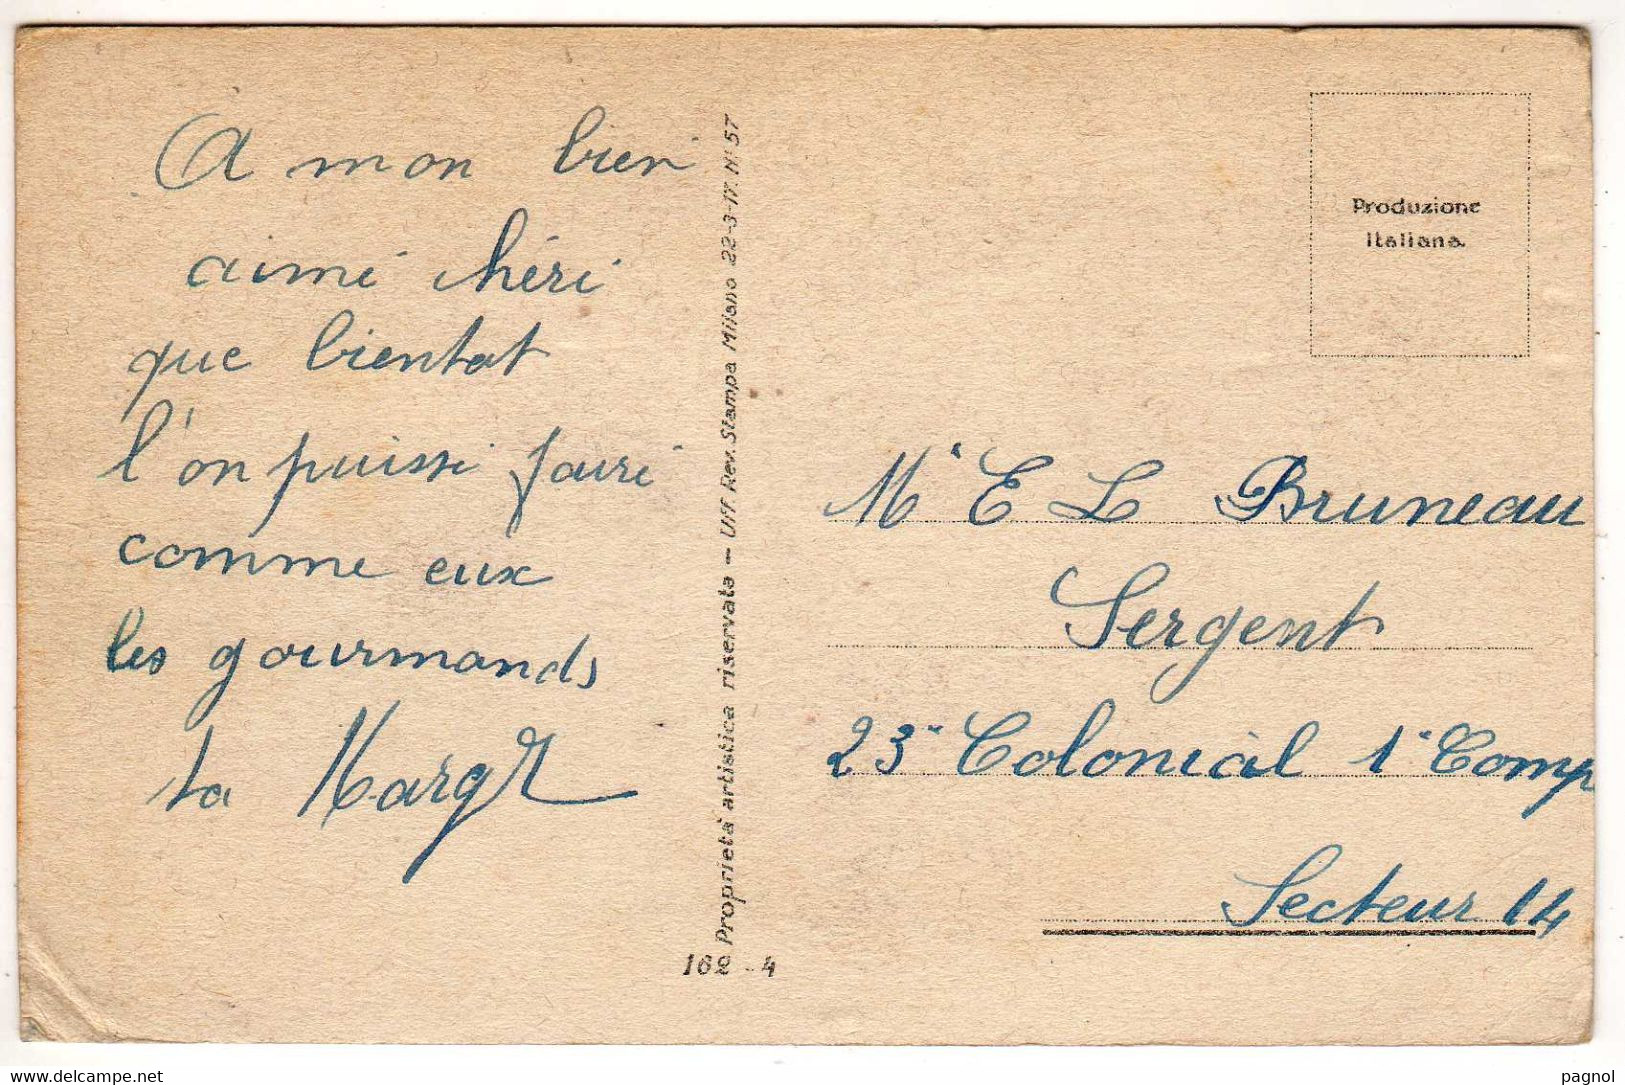 A mon bien
aimé chéri
que bientot
l'on puisse faire
comme eux
les gourmands
ta Marg
Proprietà artistica riservata - Uff. Rev. Stampa Milano 22-3-17. N. 57
162 - 4
Produzione
Italiana.
Mr E L Bruneau
Sergent
23e Colonial 1e Comp
Secteur 14
www.delcampe.net
pagnol